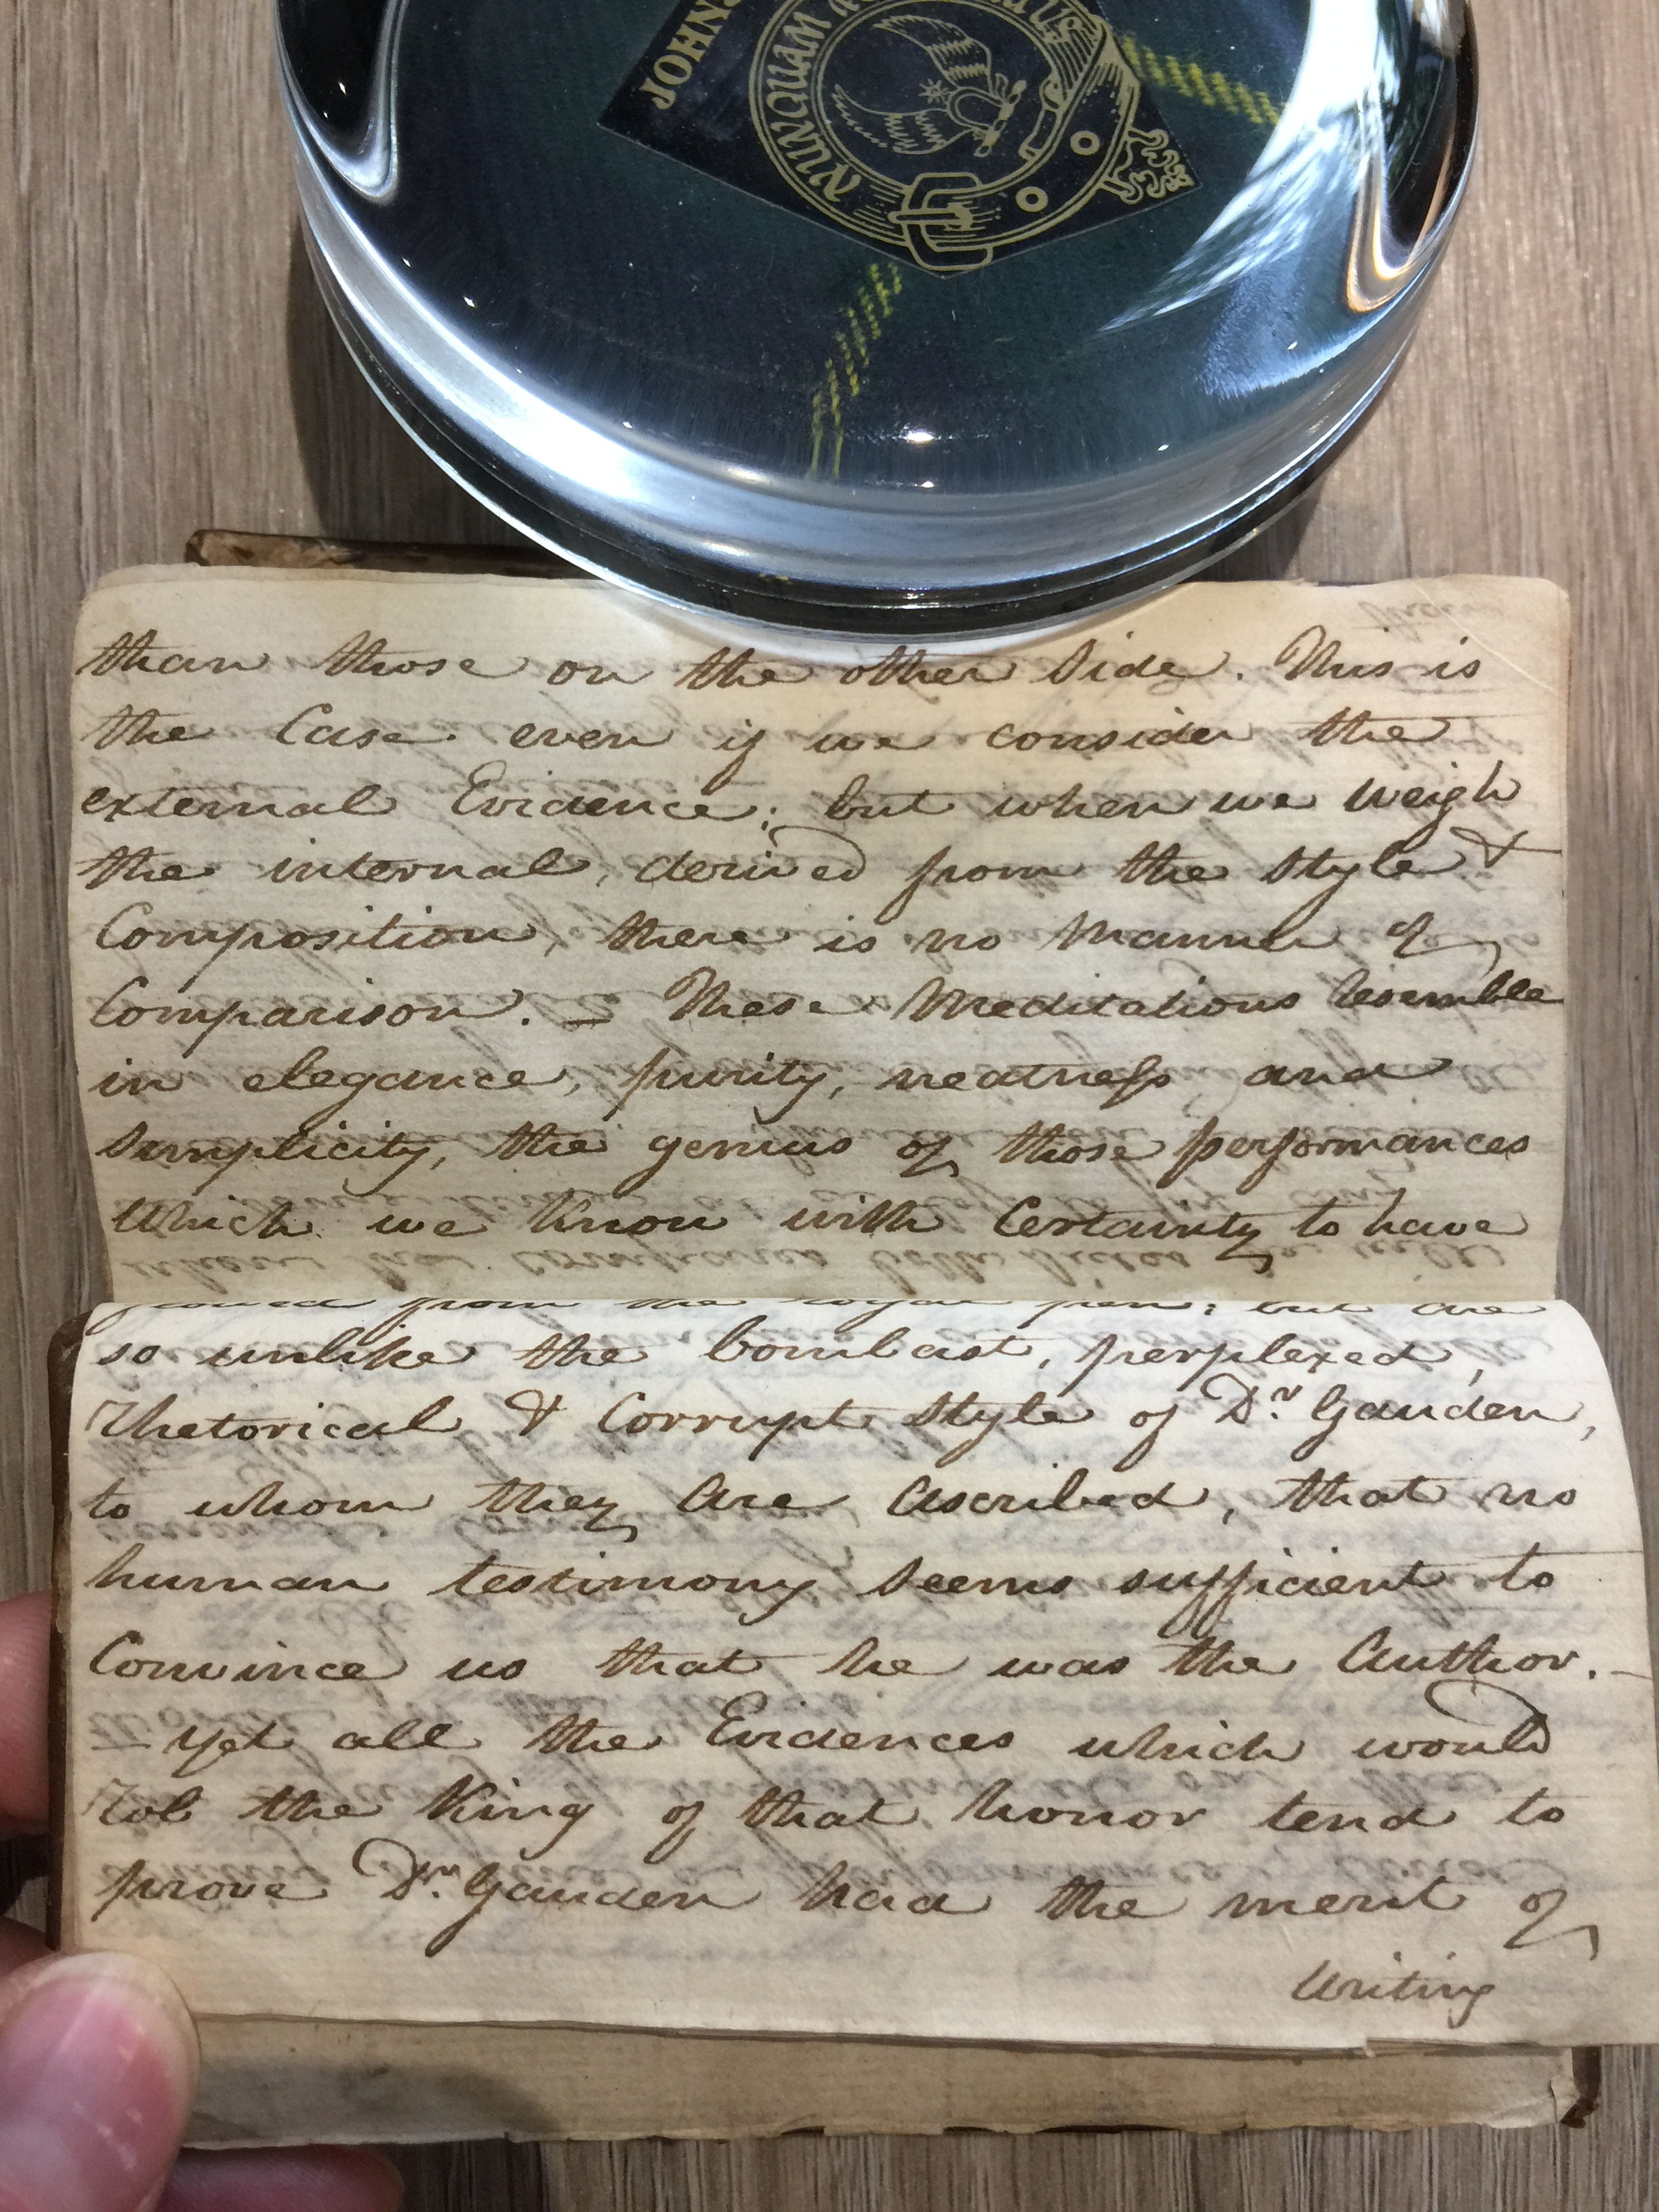 JOHNS
NUNQUAM
than those on the other side. This is
the Case even if we consider the
external Evidence; but when we weigh
the internal, derived from the style &
Composition, there is no Manner of
Comparison. – These Meditations resemble
in elegance, purity, neatness and
Simplicity, the genius of those performances
which we know with Certainty to have
flowed from the royal pen: but are
so unlike the bombast, perplexed,
Rhetorical & Corrupt style of Dr. Gauden,
to whom they are ascribed, that no
human testimony seems sufficient to
Convince us that he was the Author. –
– yet all the Evidences which would
rob the King of that honor tend to
prove Dr. Gauden had the merit of
writing